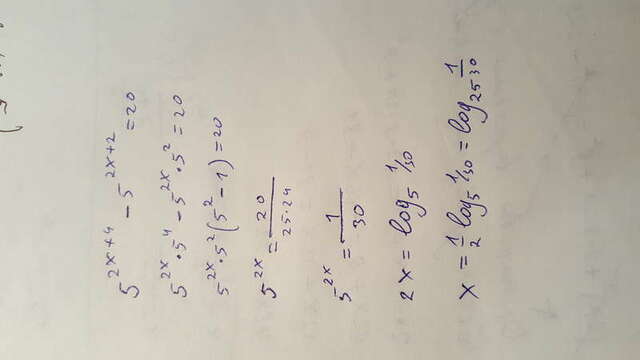 5^{2x+4} - 5^{2x+2} = 20
5^{2x} · 5^4 - 5^{2x} · 5^2 = 20
5^{2x} · 5^2 (5^2 - 1) = 20
5^{2x} = \frac{20}{25·24}
5^{2x} = \frac{1}{30}
2x = log_5 1/30
x = \frac{1}{2} log_5 1/30 = log_{25} \frac{1}{30}